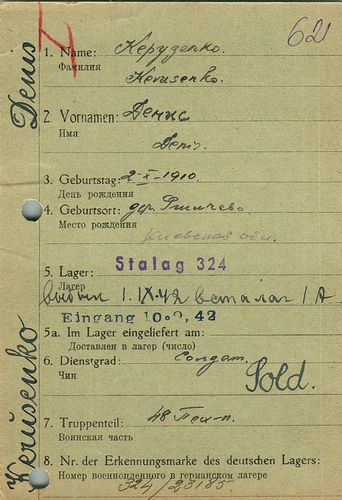 621
Denis
Kerusenko
1. Name: Керузенко.
Фамилия Kerusenko.
2. Vornamen: Денис
Имя
Denis.
3. Geburtstag: 2-X-1910.
День рождения
4. Geburtsort: дер.
Место рождения Киевская обл.
5. Lager: Stalag 324
Лагерь
выбыл 1.IX.42 в шталаг IA
Eingang 10.9.42
5a. Im Lager eingeliefert am:
Доставлен в лагер (число)
6. Dienstgrad: Солдат.
Чин
Sold.
7. Truppenteil: 48
Воинская часть
8. Nr. der Erkennungsmarke des deutschen Lagers:
Номер военнопленного в германском лагере
324/23185